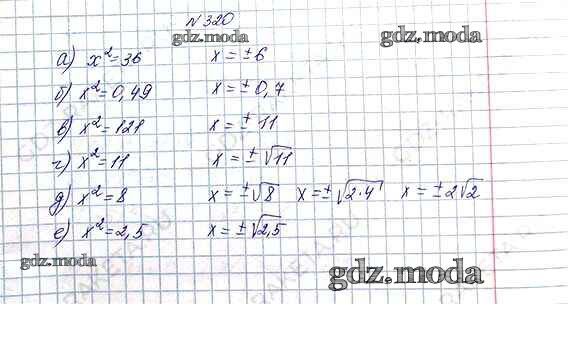 № 320
gdz.moda
gdz.moda
а) x²=36 x=±6
б) x²=0,49 x=±0,7
в) x²=121 x=±11
г) x²=11 x=±√11
д) x²=8 x=±√8 x=±√2·4 x=±2√2
е) x²=2,5 x=±√2,5
gdz.moda
gdz.moda